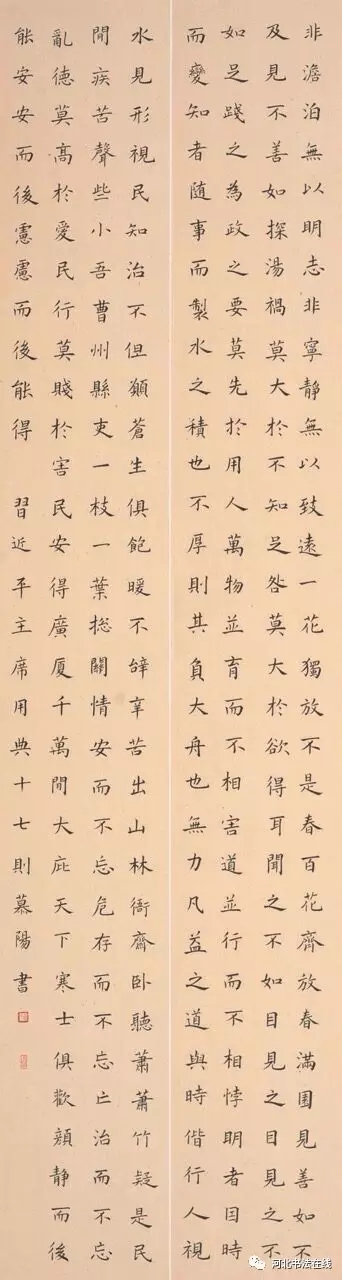 非澹泊無以明志非寧靜無以致遠一花獨放不是春百花齊放春滿園見善如不
及見不善如探湯禍莫大於不知足咎莫大於欲得耳聞之不如目見之目見之不
如足踐之為政之要莫先於用人萬物並育而不相害道並行而不相悖明者因時
而變知者随事而製水之積也不厚則其負大舟也無力凡益之道與時偕行人視
水見形視民知治不但願蒼生俱飽暖不辝辛苦出山林衙齋卧聽蕭蕭竹疑是民
間疾苦聲些小吾曹州縣吏一枝一葉揔關情安而不忘危存而不忘亡治而不忘
亂德莫高於愛民行莫賤於害民安得廣厦千萬間大庇天下寒士俱歡顔靜而後
能安安而後慮慮而後能得 習近平主席用典十七則慕陽書
河北书法在线